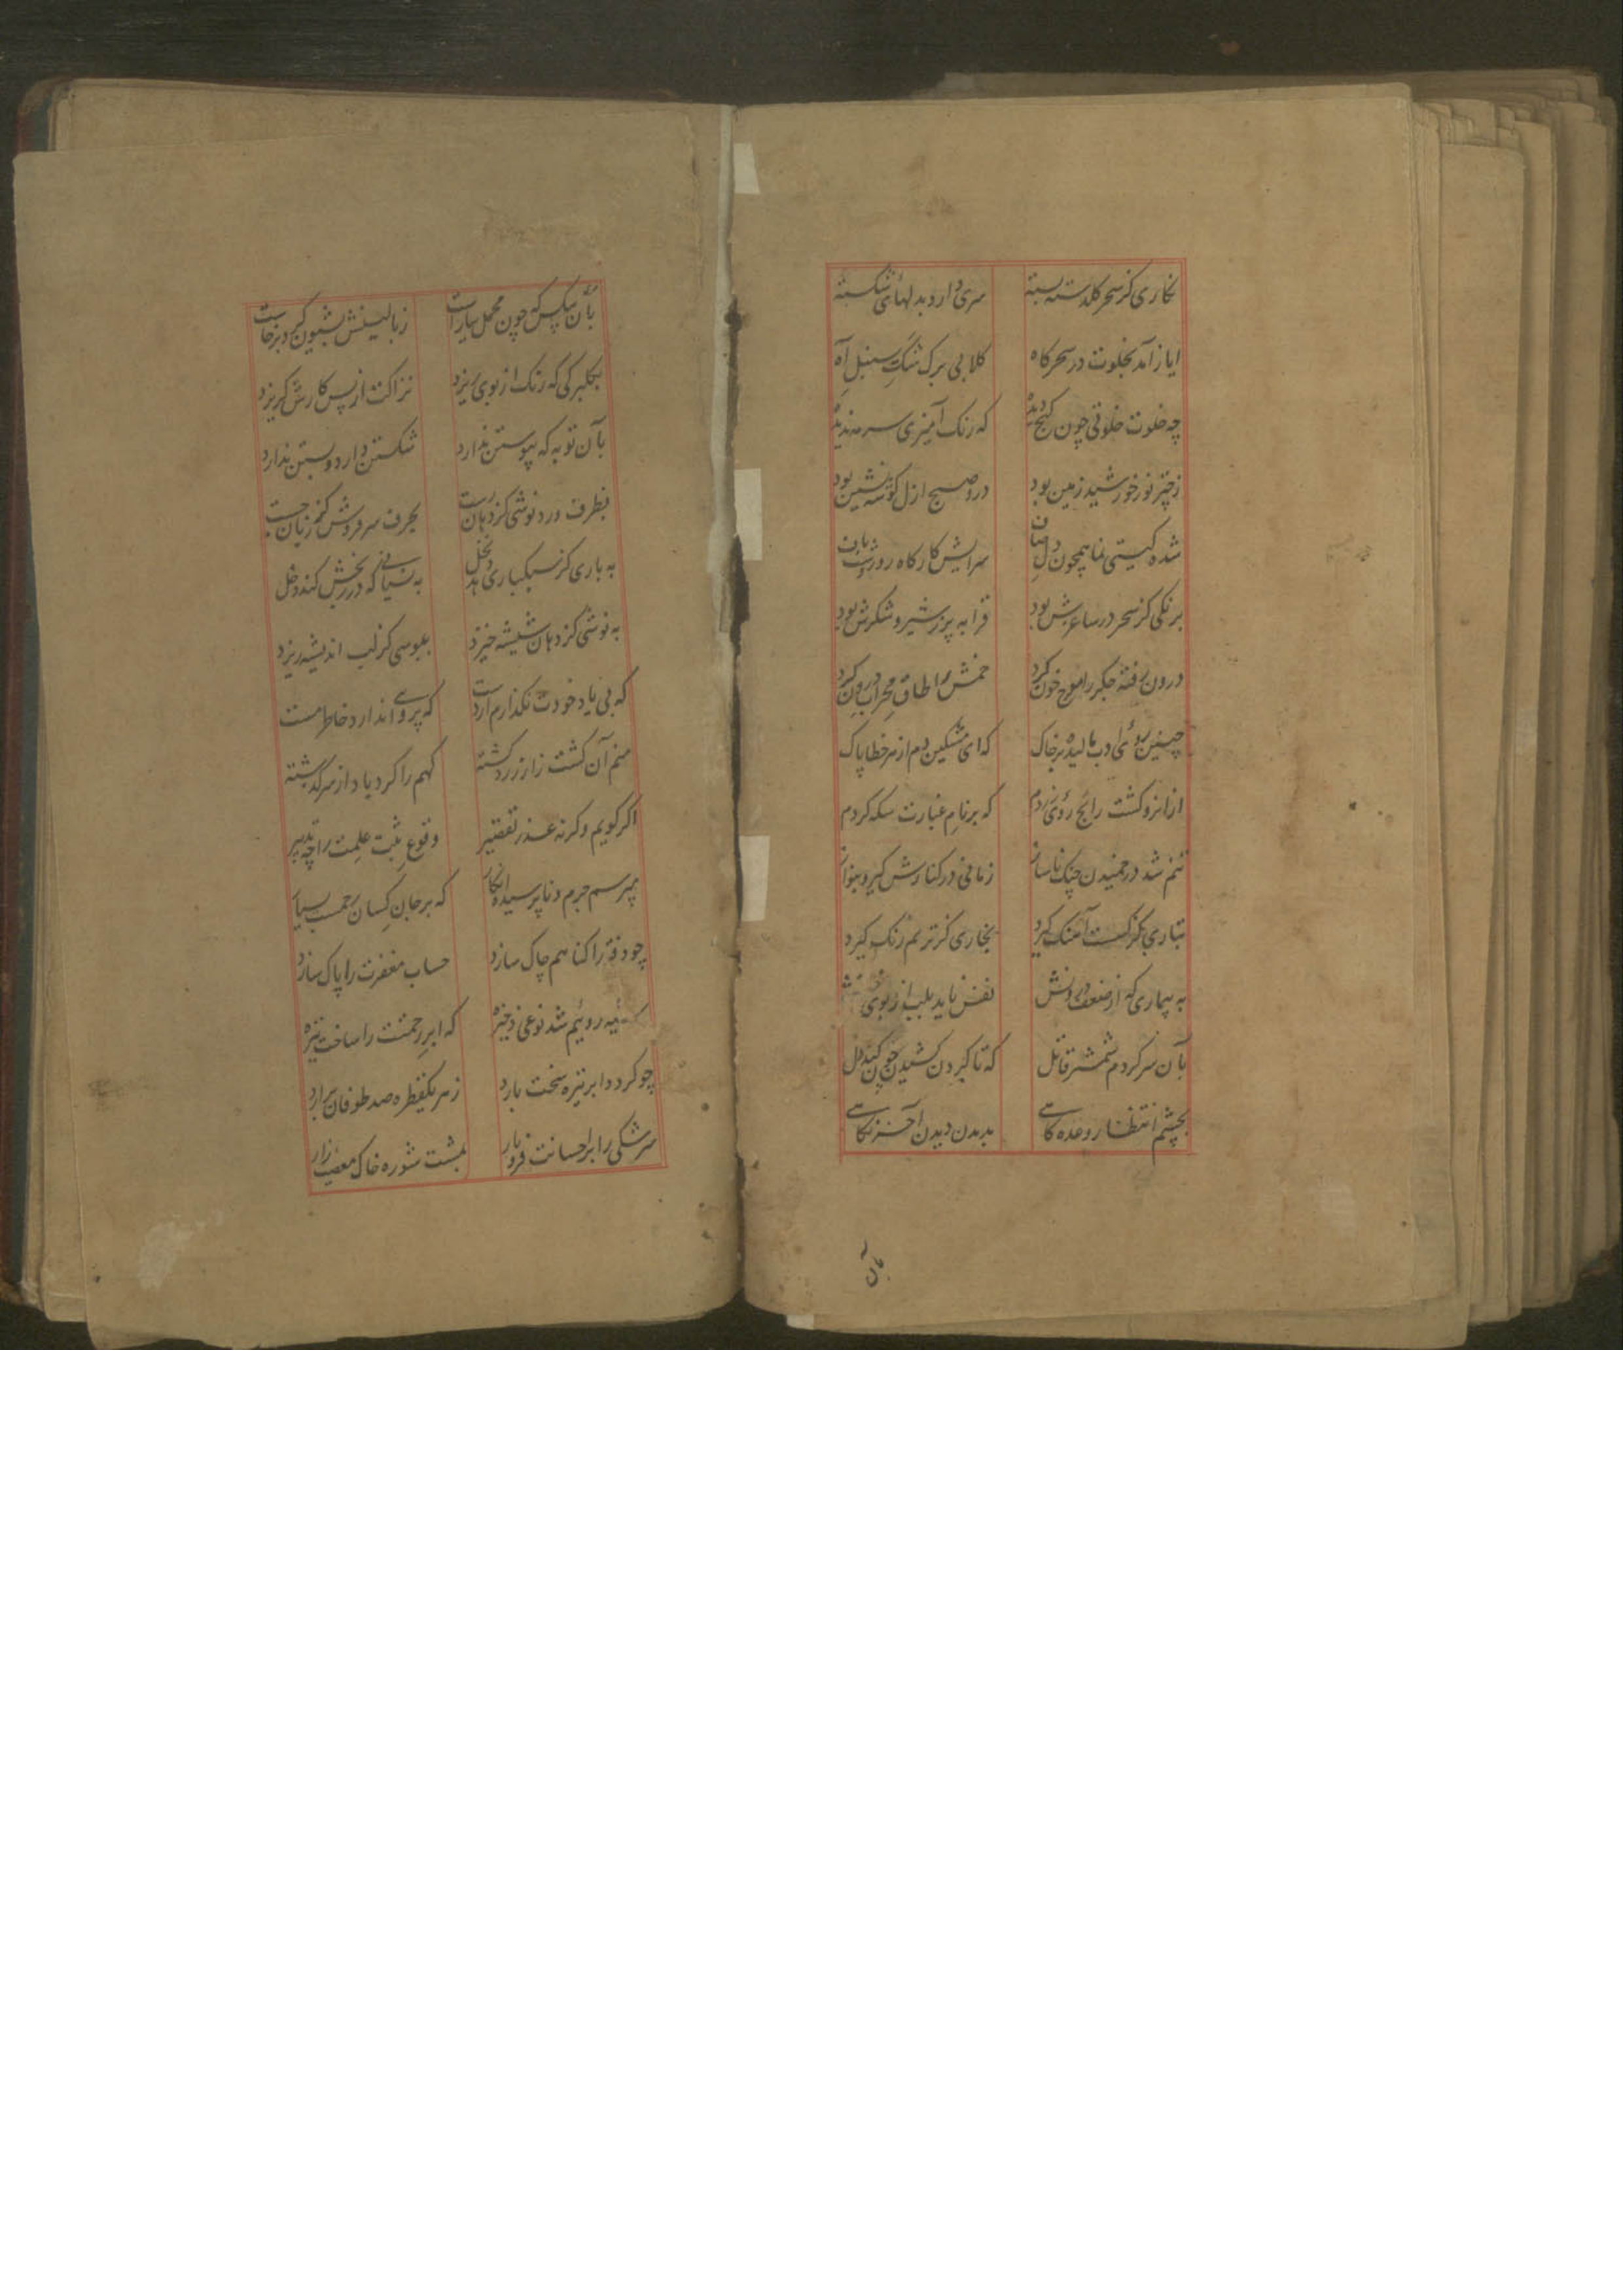 نکاری کز سحر کلدسته بسته سری دارد بدلهای شکسته
ایاز آمد بخلوت در سحرکاه کلابی برک تنک سنبل آه
چه خلوت خلوتی چون کنج دیده که رنک آمیزی سرمه ندیده
نور خورشید زمین بود درو صبح ازل کوشه نشین بود
شده کیتی نما همچون دل سرایش کارکاه روز
برنکی کز سحر در ساغرش بود قرابه پر ز شیر و شکرش بود
درون رفته جکر را موج خون کرد خمش را طاق محراب درون کرد
چنین روی ادب مالیده بر خاک که ای مشکین دم از هر خطا پاک
ازانرو کشت رایج روی زردم که بر نام عیارت سکه کردم
تنم شد در خمیدن چنک ناساز زمانی در کنارش کیر و بنواز
بتاری کز کسست آهنک کیرد بخاری کز ترنم زنک کیرد
به بیماری که از ضعف نفس ناید بلب از بوی
بآن سر کردم شمشیر قاتل که تا کردن کشیدن چون کند دل
بچشم انتظار وعده کاهی بدیدن دیدن آخر نکاهی
بآن
بآن بیکس که چون محمل بیاراست ز بالینش بشیون کرد برخاست
بکلبرکی که رنک از بوی ریزد نزاکت از پس کارش کریزد
بآن توبه که پیوستن ندارد شکستن دارد و بستن ندارد
بظرف درد نوشی کز دهان رست بحرف سرفروش کم زبان جست
به باری کز سبکباری نخل به نسیانی که در بخش کند دخل
به نوشی کز دهان شیشه خیزد ببوسی کز لب اندیشه ریزد
که بی یاد خودت نکذارم از دست که پروای ندارد خاطر مست
منم آن کشت زار زرد کشته کهم را کرد یاد از سر کذشته
اکر کویم وکر نه عذر تقصیر وقوع ثبت علمت را چه تدبیر
بپرسم جرم و ناپرسیده انکار که بر جان کسان رحمت
چو دفتر را کناهم چاک سازد حساب مغفرت را پاک سازد
سیه روئیم شد نوعی ذخیره که ابر رحمتت را ساخت تیره
چو کردد ابر تیره سخت بارد ز هر یکقطره صد طوفان برارد
سرشکی را بر احسانت فرو بار بمشت شوره خاک معصیت زار